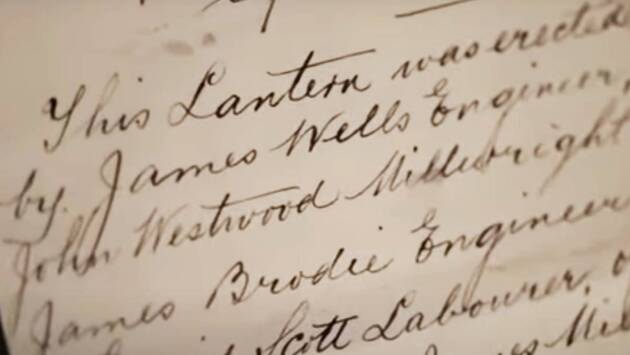 This Lantern was erected
by James Wells Engineer,
John Westwood Millwright
James Brodie Engineer
Scott Labourer,
James